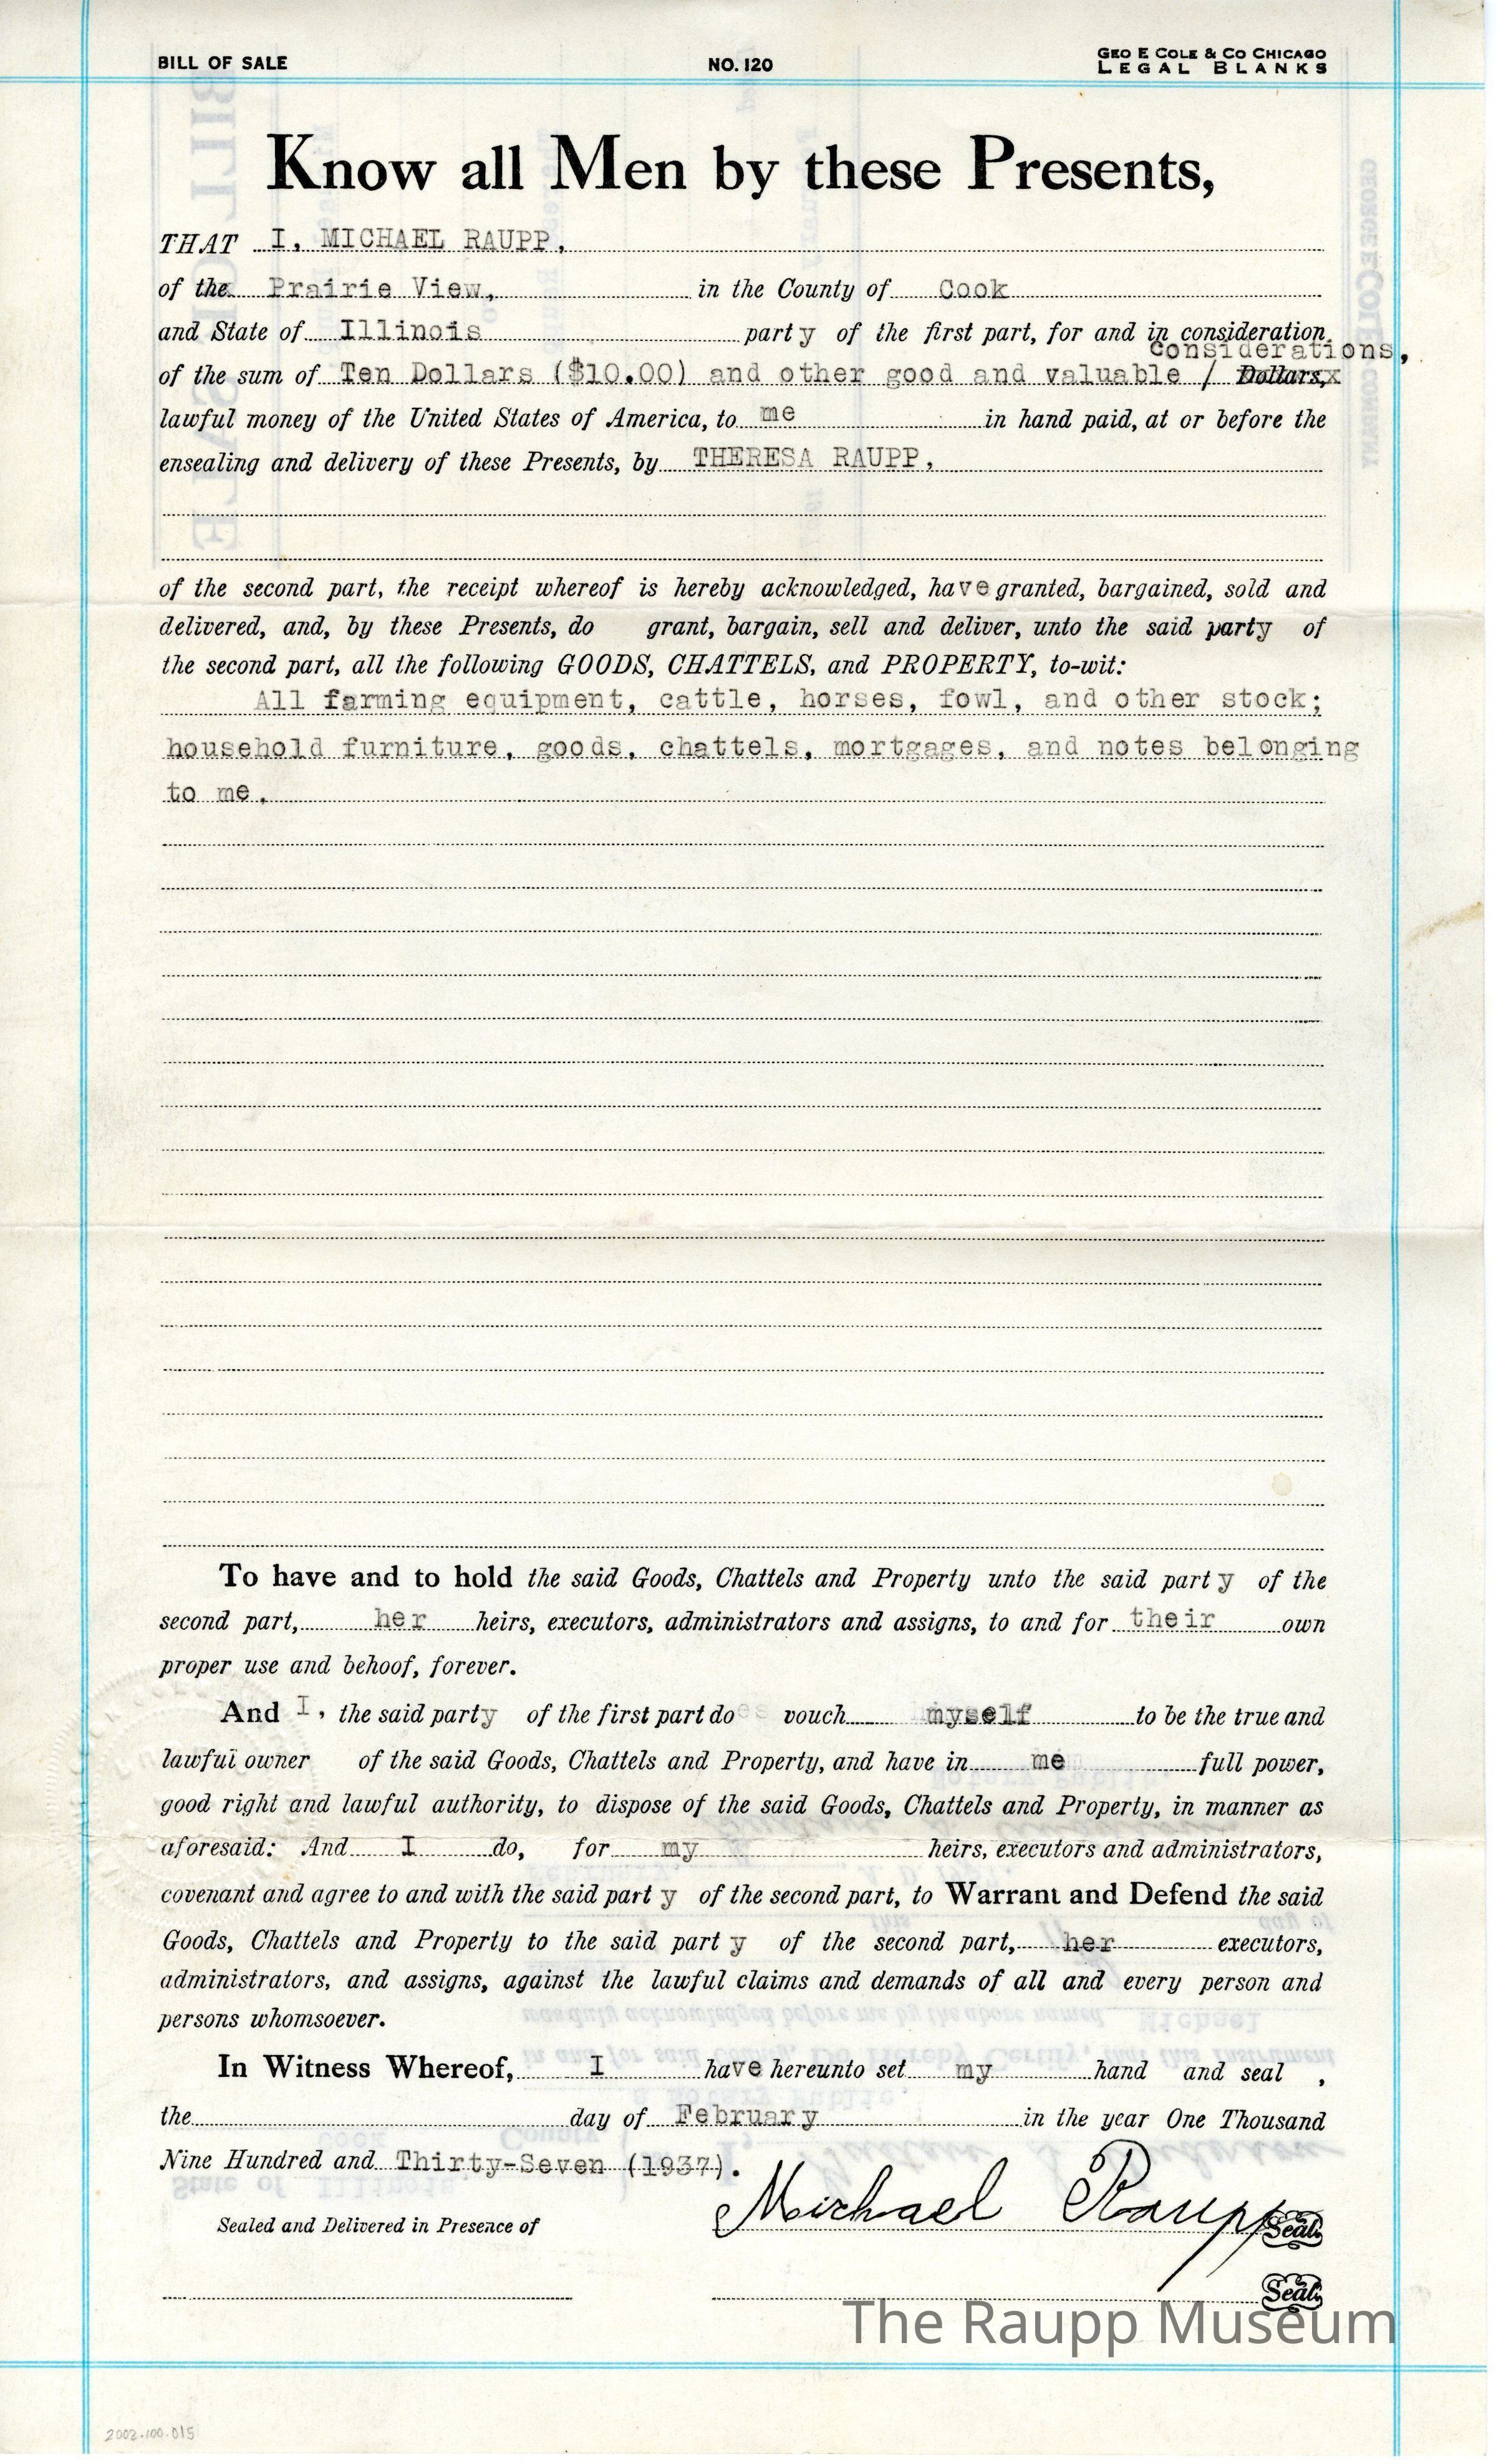 BILL OF SALE NO. 120 GEO E COLE & CO CHICAGO
LEGAL BLANKS
Know all Men by these Presents,
THAT I, MICHAEL RAUPP,
of the Prairie View, in the County of Cook
and State of Illinois party of the first part, for and in consideration
considerations,
of the sum of Ten Dollars ($10.00) and other good and valuable / Dollars,x
lawful money of the United States of America, to me in hand paid, at or before the
ensealing and delivery of these Presents, by THERESA RAUPP,
of the second part, the receipt whereof is hereby acknowledged, have granted, bargained, sold and
delivered, and, by these Presents, do grant, bargain, sell and deliver, unto the said party of
the second part, all the following GOODS, CHATTELS, and PROPERTY, to-wit:
All farming equipment, cattle, horses, fowl, and other stock;
household furniture, goods, chattels, mortgages, and notes belonging
to me.
To have and to hold the said Goods, Chattels and Property unto the said party of the
second part, her heirs, executors, administrators and assigns, to and for their own
proper use and behoof, forever.
And I, the said party of the first part does vouch myself to be the true and
lawful owner of the said Goods, Chattels and Property, and have in me full power,
good right and lawful authority, to dispose of the said Goods, Chattels and Property, in manner as
aforesaid: And I do, for my heirs, executors and administrators,
covenant and agree to and with the said party of the second part, to Warrant and Defend the said
Goods, Chattels and Property to the said party of the second part, her executors,
administrators, and assigns, against the lawful claims and demands of all and every person and
persons whomsoever.
In Witness Whereof, I have hereunto set my hand and seal ,
the day of February in the year One Thousand
Nine Hundred and Thirty-Seven (1937).
Michael Raupp Seal
Sealed and Delivered in Presence of
Seal
The Raupp Museum
2002.100.015